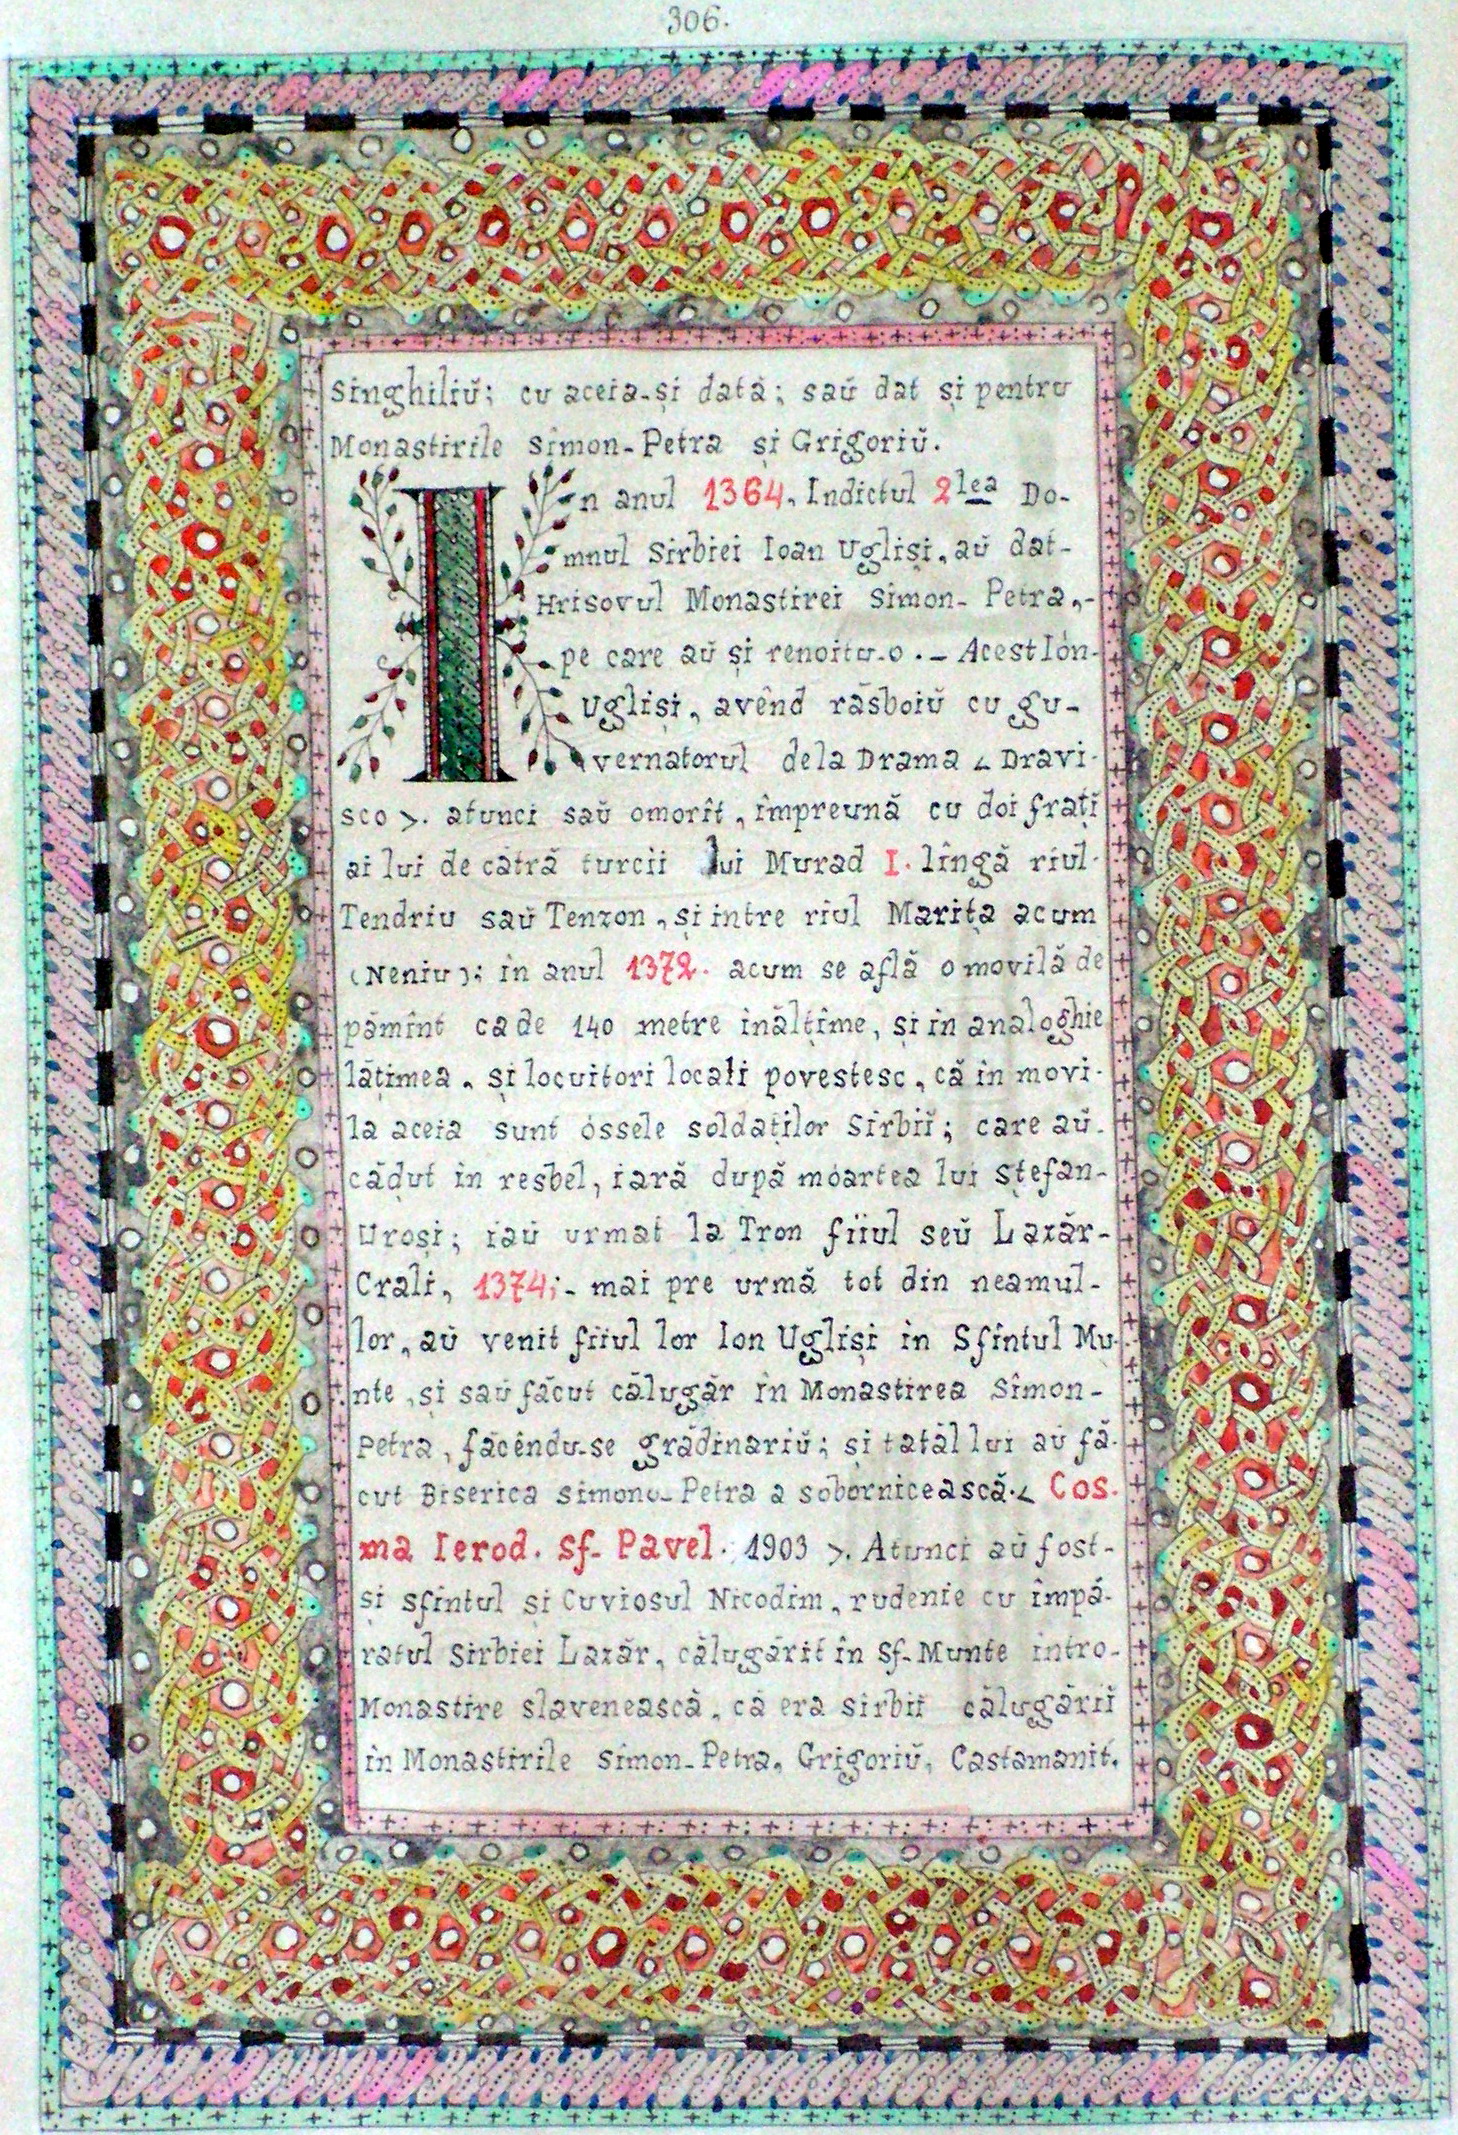 306.
singhiliŭ; cu aceia-și dată; saŭ dat și pentru
Monastirile simon-Petra și Grigoriŭ.
In anul 1364, Indictul 2lea Do-
mnul Sirbiei Ioan Uglișĭ, aŭ dat-
Hrisovul Monastirei Simon-Petra,-
pe care aŭ și renoitu-o.- Acest Ión-
Uglișĭ, avênd răsboiŭ cu gu-
vernatorul dela Drama < Dravi-
sco >. atunci saŭ omorît, împreună cu doi frați
ai lui de cătră turcii lui Murad I. lîngă rîul-
Tendriu saŭ Tenzon, și intre rîul Marița acum
(Neniu); în anul 1372. acum se află o movilă de
pămînt ca de 140 metre inălțîme, și in analoghie
lățimea, și locuitori locali povestesc, că in movi-
la aceia sunt óssele soldaților Sirbiĭ; care aŭ-
căḑut in resbel, iară după móartea lui ștefan-
Uroși; iaŭ urmat la Tron fiiul seŭ Lazăr-
Crali, 1374;- mai pre urmă tot din neamul-
lor, aŭ venit fiiul lor Ion Uglișĭ in Sfîntul Mu-
nte, și saŭ făcut călugăr în Monastirea Simon-
Petra, făcêndu-se grădinariŭ; și tatăl lui aŭ fă-
cut Biserica simono-Petra a sobornicească.< Cos-
ma Ierod. sf- Pavel. 1903 >. Atunci aŭ fost-
și sfintul și Cuviosul Nicodim, rudenie cu împă-
ratul Sirbiei Lazăr, călugărit în Sf-Munte intro-
Monastire slavenească, că era sirbiĭ călugăriĭ
in Monastirile Simon-Petra, Grigoriŭ, Castamanit.